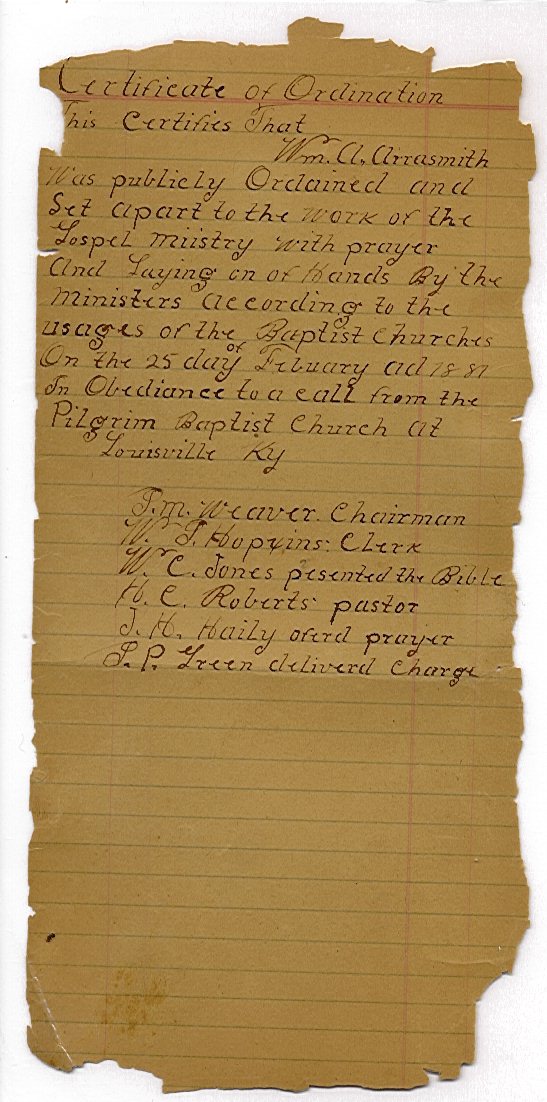 Certificate of Ordination
This Certifies That
Wm. A. Arrasmith
Was publicly Ordained and
Set apart to the work of the
Gospel Miistry with prayer
And Laying on of Hands By the
Ministers according to the
usages of the Baptist Churches
On the 25 day of Febuary ad 1887
In Obediance to a call from the
Pilgrim Baptist Church at
Louisville Ky
J.M. Weaver. Chairman
W. J. Hopkins: Clerk
W. C. Jones pesented the Bible
H. C. Roberts pastor
J. H. Haily oferd prayer
J. P. Green deliverd charge